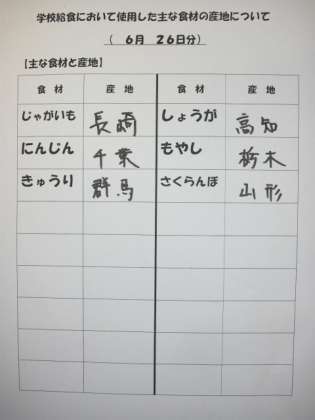 学校給食において使用した主な食材の産地について
（　６月　２６日分）
【主な食材と産地】
食　材　産　地　食　材　産　地
じゃがいも　長崎　しょうが　高知
にんじん　千葉　もやし　栃木
きゅうり　群馬　さくらんぼ　山形